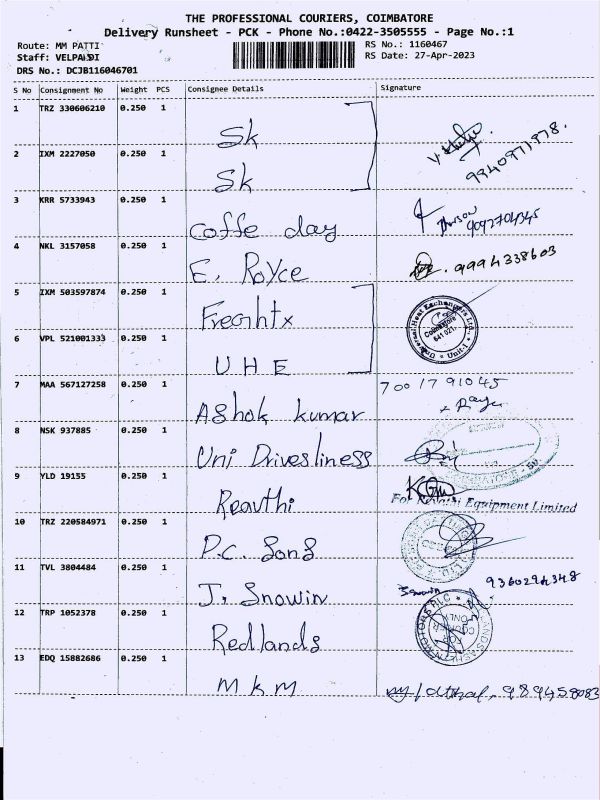 THE PROFESSIONAL COURIERS, COIMBATORE
Delivery Runsheet - PCK - Phone No.:0422-3505555 - Page No.:1
Route: MM PATTI RS No.: 1160467
Staff: VELPANDI RS Date: 27-Apr-2023
DRS No.: DCJB116046701
S No Consignment No Weight PCS Consignee Details Signature
1 TRZ 330606210 0.250 1 Sk
2 IXM 2227050 0.250 1 Sk 9940971978.
3 KRR 5733943 0.250 1 Coffe day 9092704345
4 NKL 3157058 0.250 1 E. Royce 9994338603
5 IXM 503597874 0.250 1 Freightx
6 VPL 521001333 0.250 1 U H E Coimbatore 641 021. Unit-I
7 MAA 567127258 0.250 1 Ashok kumar 7001791045
8 NSK 937885 0.250 1 Uni Drivesliness
9 YLD 19155 0.250 1 Reavthi
For Revathi Equipment Limited
10 TRZ 220584971 0.250 1 P.C. Sons
11 TVL 3804484 0.250 1 J. Snowin Snowin 9360294348
12 TRP 1052378 0.250 1 Redlands
13 EDQ 15882686 0.250 1 M K M